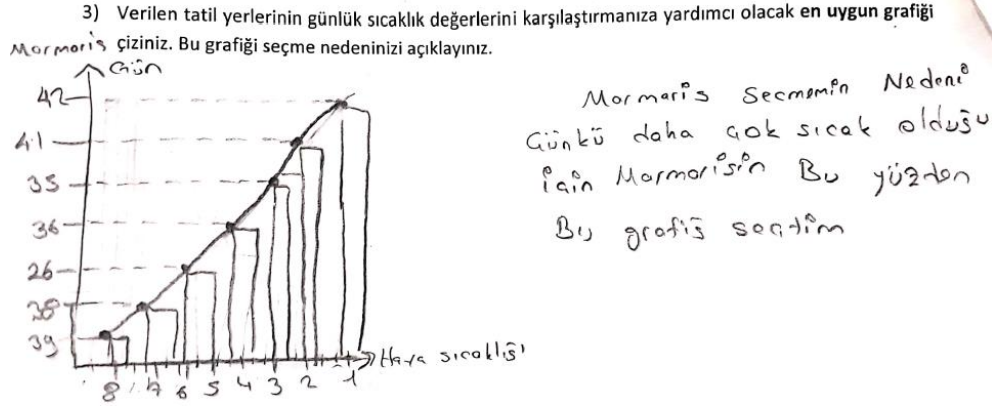 3) Verilen tatil yerlerinin günlük sıcaklık değerlerini karşılaştırmanıza yardımcı olacak en uygun grafiği
çiziniz. Bu grafiği seçme nedeninizi açıklayınız.
Marmaris
Gün
42
41
35
36
26
38
39
8 7 6 5 4 3 2 1
Hava sıcaklığı
Marmaris Secmemin Nedeni
Günkü daha çok sıcak olduşu
için Marmarisin Bu yüzden
Bu grafiş seçtim